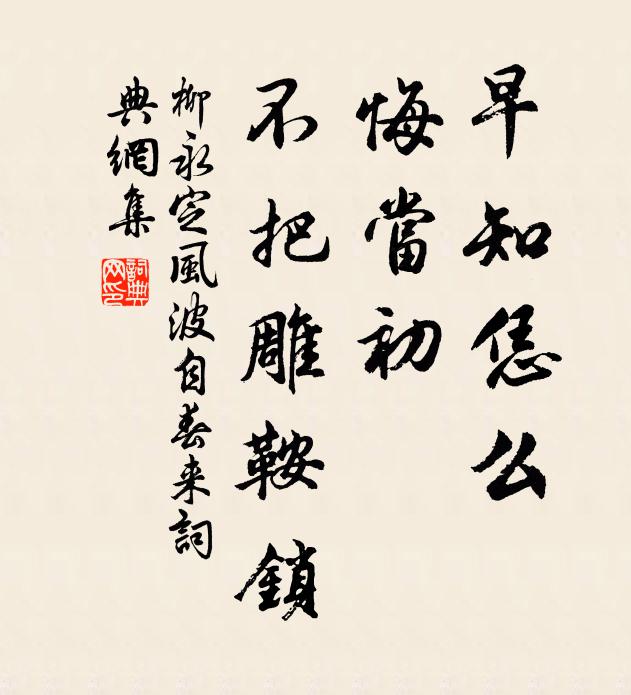 早知恁么
悔當初
不把雕鞍鎖
柳永定風波自春来詞
典網集
詞典網印